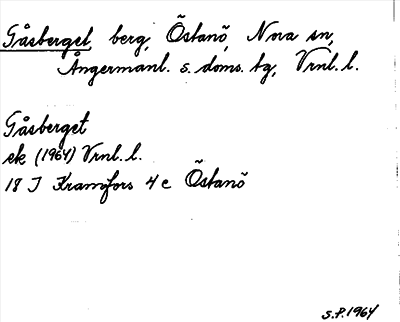 Gåsberget, berg, Östanö, Nora sn,
Ångermanl. s. doms. tg, Vrnl. l.
Gåsberget
ek (1964) Vrnl. l.
18 I Kramfors 4 c Östanö
S.P. 1964